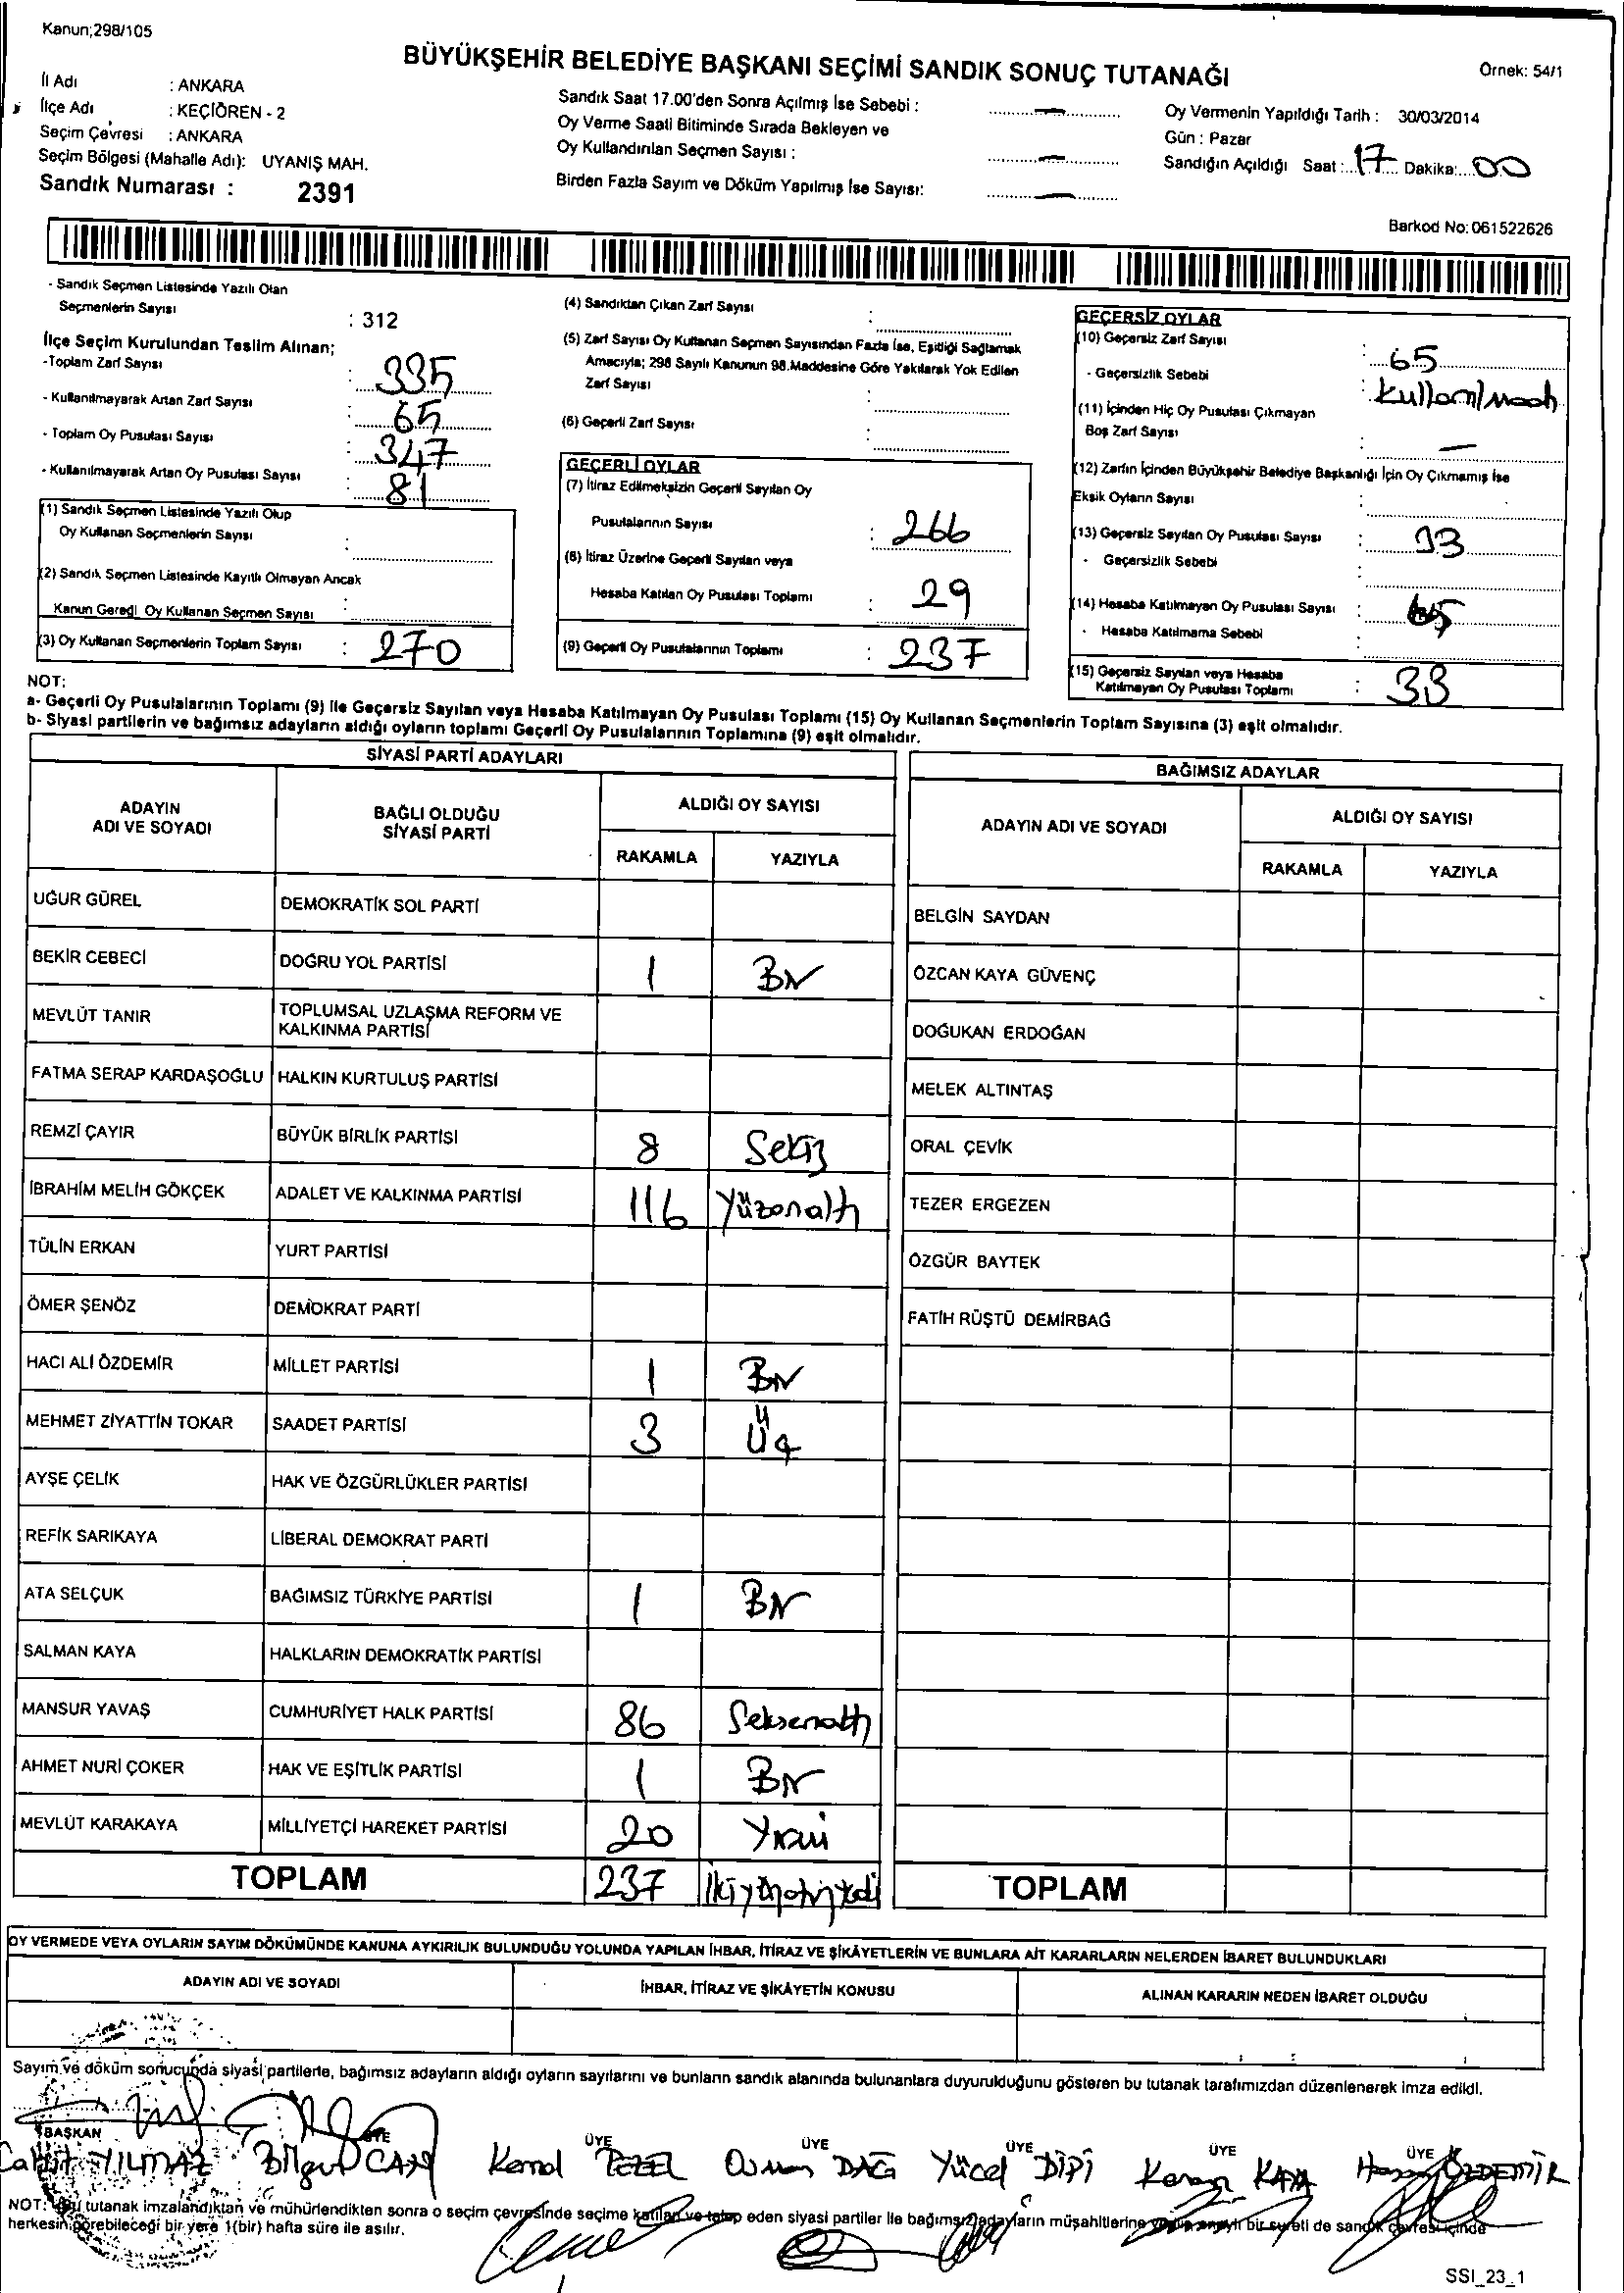 Kanun;298/105
BÜYÜKŞEHİR BELEDİYE BAŞKANI SEÇİMİ SANDIK SONUÇ TUTANAĞI
Örnek: 54/1
İl Adı : ANKARA
İlçe Adı : KEÇİÖREN - 2
Seçim Çevresi : ANKARA
Seçim Bölgesi (Mahalle Adı): UYANIŞ MAH.
Sandık Numarası : 2391
Sandık Saat 17.00'den Sonra Açılmış İse Sebebi : —
Oy Verme Saati Bitiminde Sırada Bekleyen ve
Oy Kullandırılan Seçmen Sayısı : —
Birden Fazla Sayım ve Döküm Yapılmış İse Sayısı: —
Oy Vermenin Yapıldığı Tarih : 30/03/2014
Gün : Pazar
Sandığın Açıldığı Saat : 17 Dakika: 00
Barkod No: 061522626
- Sandık Seçmen Listesinde Yazılı Olan
Seçmenlerin Sayısı : 312
İlçe Seçim Kurulundan Teslim Alınan;
-Toplam Zarf Sayısı : 335
- Kullanılmayarak Artan Zarf Sayısı : 65
- Toplam Oy Pusulası Sayısı : 347
- Kullanılmayarak Artan Oy Pusulası Sayısı : 81
(1) Sandık Seçmen Listesinde Yazılı Olup
Oy Kullanan Seçmenlerin Sayısı :
(2) Sandık Seçmen Listesinde Kayıtlı Olmayan Ancak
Kanun Gereği Oy Kullanan Seçmen Sayısı :
(3) Oy Kullanan Seçmenlerin Toplam Sayısı : 270
(4) Sandıktan Çıkan Zarf Sayısı :
(5) Zarf Sayısı Oy Kullanan Seçmen Sayısından Fazla İse, Eşitliği Sağlamak
Amacıyla; 298 Sayılı Kanunun 98.Maddesine Göre Yakılarak Yok Edilen
Zarf Sayısı :
(6) Geçerli Zarf Sayısı :
GEÇERLİ OYLAR
(7) İtiraz Edilmeksizin Geçerli Sayılan Oy
Pusulalarının Sayısı : 266
(8) İtiraz Üzerine Geçerli Sayılan veya
Hesaba Katılan Oy Pusulası Toplamı : 29
(9) Geçerli Oy Pusulalarının Toplamı : 237
GEÇERSİZ OYLAR
(10) Geçersiz Zarf Sayısı : 65
- Geçersizlik Sebebi :
(11) İçinden Hiç Oy Pusulası Çıkmayan
Boş Zarf Sayısı : —
(12) Zarfın İçinden Büyükşehir Belediye Başkanlığı İçin Oy Çıkmamış İse
Eksik Oyların Sayısı :
(13) Geçersiz Sayılan Oy Pusulası Sayısı : 33
- Geçersizlik Sebebi :
(14) Hesaba Katılmayan Oy Pusulası Sayısı :
- Hesaba Katılmama Sebebi :
(15) Geçersiz Sayılan veya Hesaba
Katılmayan Oy Pusulası Toplamı : 33
NOT:
a- Geçerli Oy Pusulalarının Toplamı (9) ile Geçersiz Sayılan veya Hesaba Katılmayan Oy Pusulası Toplamı (15) Oy Kullanan Seçmenlerin Toplam Sayısına (3) eşit olmalıdır.
b- Siyasi partilerin ve bağımsız adayların aldığı oyların toplamı Geçerli Oy Pusulalarının Toplamına (9) eşit olmalıdır.
SİYASİ PARTİ ADAYLARI
ADAYIN ADI VE SOYADI BAĞLI OLDUĞU SİYASİ PARTİ ALDIĞI OY SAYISI
RAKAMLA YAZIYLA
UĞUR GÜREL DEMOKRATİK SOL PARTİ
BEKİR CEBECİ DOĞRU YOL PARTİSİ 1 Bir
MEVLÜT TANIR TOPLUMSAL UZLAŞMA REFORM VE
KALKINMA PARTİSİ
FATMA SERAP KARDAŞOĞLU HALKIN KURTULUŞ PARTİSİ
REMZİ ÇAYIR BÜYÜK BİRLİK PARTİSİ 8 Sekiz
İBRAHİM MELİH GÖKÇEK ADALET VE KALKINMA PARTİSİ 116 Yüzonaltı
TÜLİN ERKAN YURT PARTİSİ
ÖMER ŞENÖZ DEMOKRAT PARTİ
HACI ALİ ÖZDEMİR MİLLET PARTİSİ 1 Bir
MEHMET ZİYATTİN TOKAR SAADET PARTİSİ 3 Üç
AYŞE ÇELİK HAK VE ÖZGÜRLÜKLER PARTİSİ
REFİK SARIKAYA LİBERAL DEMOKRAT PARTİ
ATA SELÇUK BAĞIMSIZ TÜRKİYE PARTİSİ 1 Bir
SALMAN KAYA HALKLARIN DEMOKRATİK PARTİSİ
MANSUR YAVAŞ CUMHURİYET HALK PARTİSİ 86 Seksenaltı
AHMET NURİ ÇOKER HAK VE EŞİTLİK PARTİSİ 1 Bir
MEVLÜT KARAKAYA MİLLİYETÇİ HAREKET PARTİSİ 20 Yirmi
TOPLAM 237 İkiyüzotuzyedi
BAĞIMSIZ ADAYLAR
ADAYIN ADI VE SOYADI ALDIĞI OY SAYISI
RAKAMLA YAZIYLA
BELGİN SAYDAN
ÖZCAN KAYA GÜVENÇ
DOĞUKAN ERDOĞAN
MELEK ALTINTAŞ
ORAL ÇEVİK
TEZER ERGEZEN
ÖZGÜR BAYTEK
FATİH RÜŞTÜ DEMİRBAĞ
TOPLAM
OY VERMEDE VEYA OYLARIN SAYIM DÖKÜMÜNDE KANUNA AYKIRILIK BULUNDUĞU YOLUNDA YAPILAN İHBAR, İTİRAZ VE ŞİKÂYETLERİN VE BUNLARA AİT KARARLARIN NELERDEN İBARET BULUNDUKLARI
ADAYIN ADI VE SOYADI İHBAR, İTİRAZ VE ŞİKÂYETİN KONUSU ALINAN KARARIN NEDEN İBARET OLDUĞU
Sayım ve döküm sonucunda siyasi partilerle, bağımsız adayların aldığı oyların sayılarını ve bunların sandık alanında bulunanlara duyurulduğunu gösteren bu tutanak tarafımızdan düzenlenerek imza edildi.
BAŞKAN ÜYE ÜYE ÜYE ÜYE ÜYE ÜYE
Cahit YILMAZ Bilgin CAN Kemal Osman DAĞ Yücel DİPİ Kenan KAYA Hasan ÖZDEMİR
NOT: Bu tutanak imzalandıktan ve mühürlendikten sonra o seçim çevresinde seçime katılan ve talep eden siyasi partiler ile bağımsız adayların müşahitlerine onaylı bir sureti de sandık çevresi içinde
herkesin görebileceği bir yere 1(bir) hafta süre ile asılır.
SSI_23_1